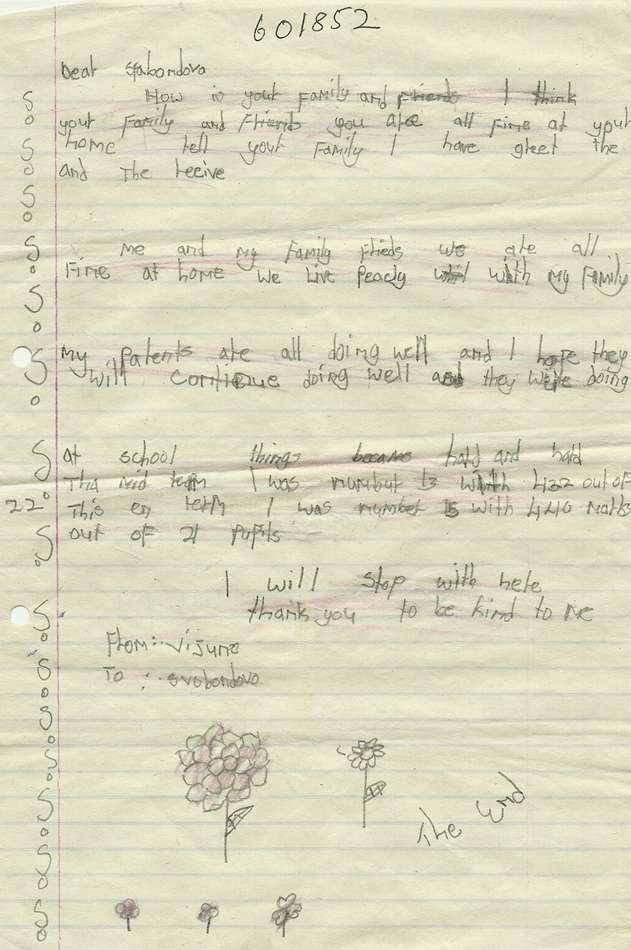 601852
Dear Svabondova
How is your family and Friends I think
your Family and Friends you are all fine at your
home tell your Family I have greet the
and The receive
me and my Family Frieds we are all
Fine at home we Live Peacly with my Family
My Parents are all doing well and I hope they
will contiune doing well and they were doing
at school things became hard and hard
Tha mid term I was number 13 with 422 out of
22
This en term I was number 15 with 440 Marks
out of 21 Pupils
I will stop with here
thank you to be kind to me
From:- Vijuna
To :- svobondova
The End